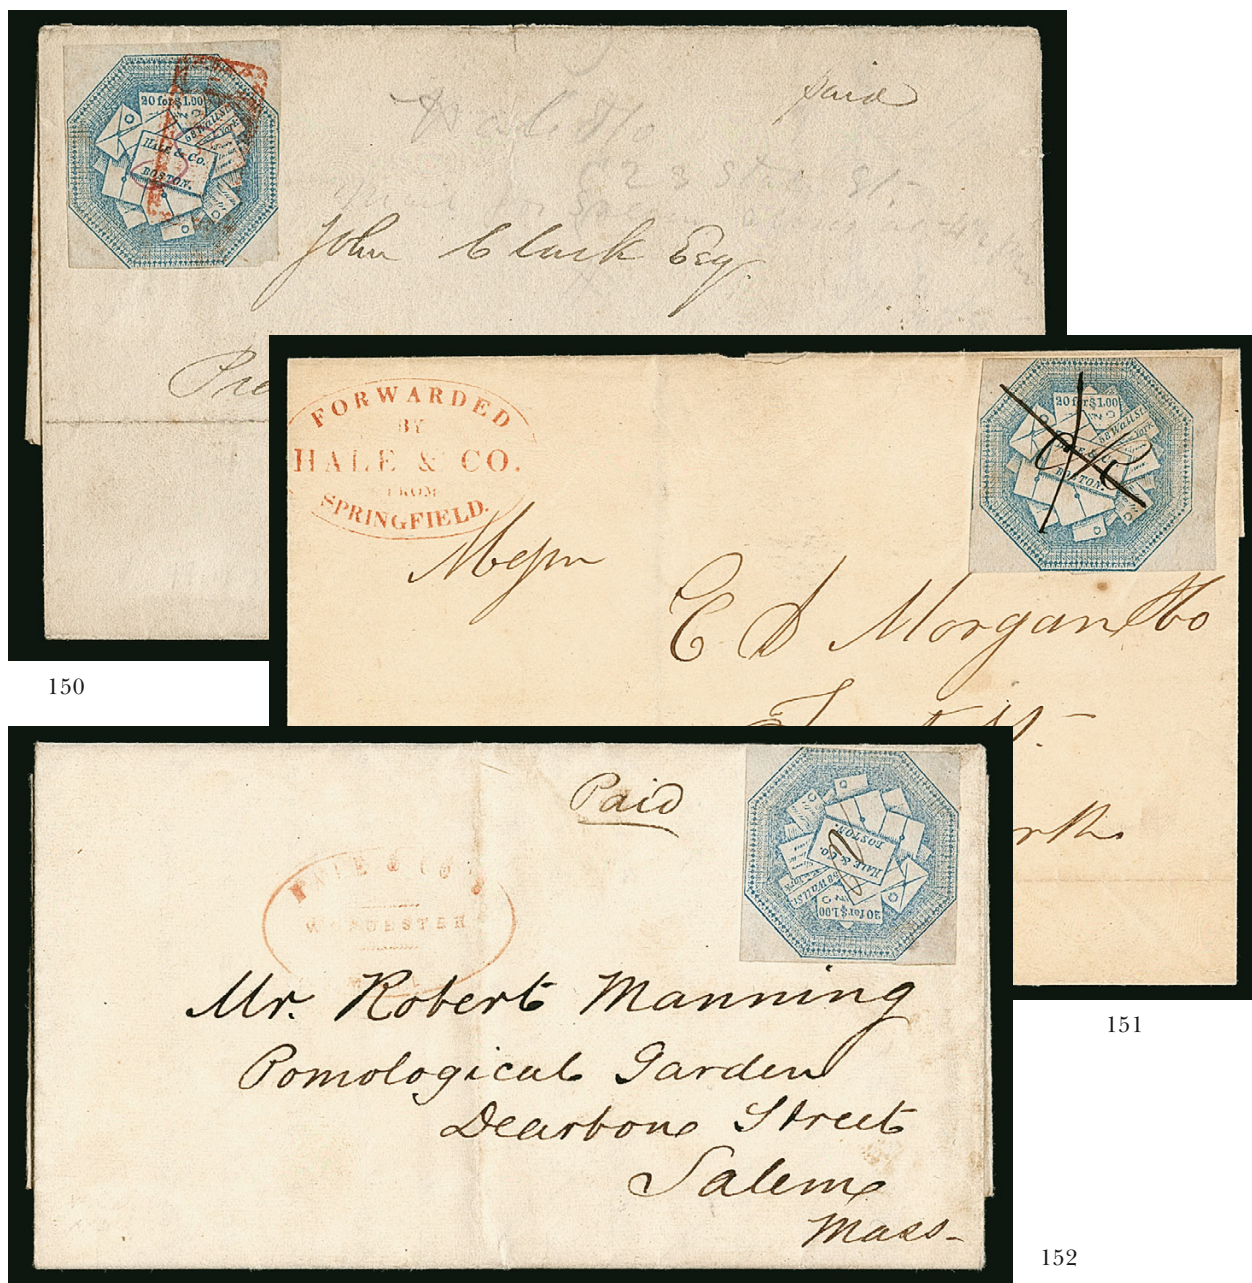 20 for $1.00
58 Wall St.
HALE & Co.
BOSTON.
paid
John Clark Esq.
FORWARDED
BY
HALE & CO.
FROM
SPRINGFIELD.
20 for $1.00
58 Wall St.
York
BOSTON.
Messrs
E D Morgan & Co
150
Paid
HALE & Co.
BOSTON.
58 Wall St.
20 for $1.00
HALE & CO'S
WORCESTER
Mr. Robert Manning
Pomological Garden
Dearbone Street
Salem
Mass-
151
152